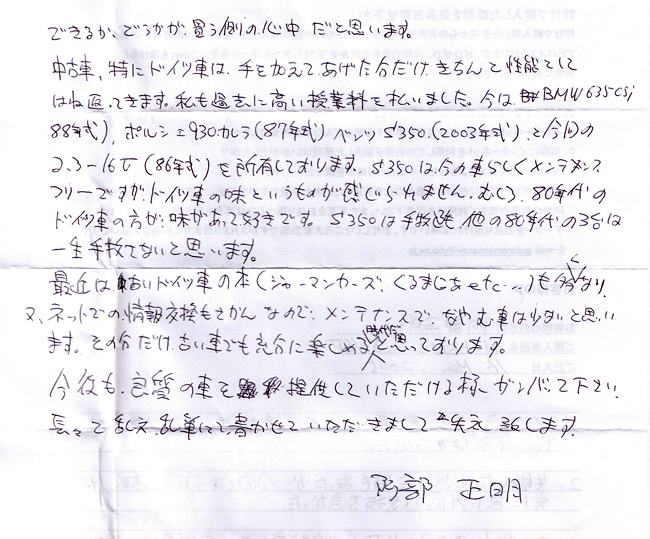 できるか、どうかが、買う側の心中だと思います。
中古車、特にドイツ車は、手を加えてあげた分だけ、きちんと性能として
はね返ってきます。私も過去に高い授業料を払いました。今は、BMW635CSi
88年式)、ポルシェ930カレラ(87年式)ベンツS350.(2003年式)、と今回の
2.3-16V(86年式)を所有しております。S350は今の車らしくメンテナンス
フリーですが、ドイツ車の味というものが感じられません。むしろ、80年代の
ドイツ車の方が味があって好きです。S350は手放せど他の80年代の3台は
一生手放せないと思います。
最近は古いドイツ車の本(ジャーマンカーズ、くるまにあetc…)も多くなり、
又、ネットでの情報交換もさかんなので、メンテナンスで、なやむ事は少ないと思い
ます。その分だけ古い車でも充分に楽しめる時代だと思っております。
今後も、良質の車を提供していただける様、ガンバって下さい。
長々と乱文、乱筆にて書かせていただきまして失礼致します。
阿部 正明